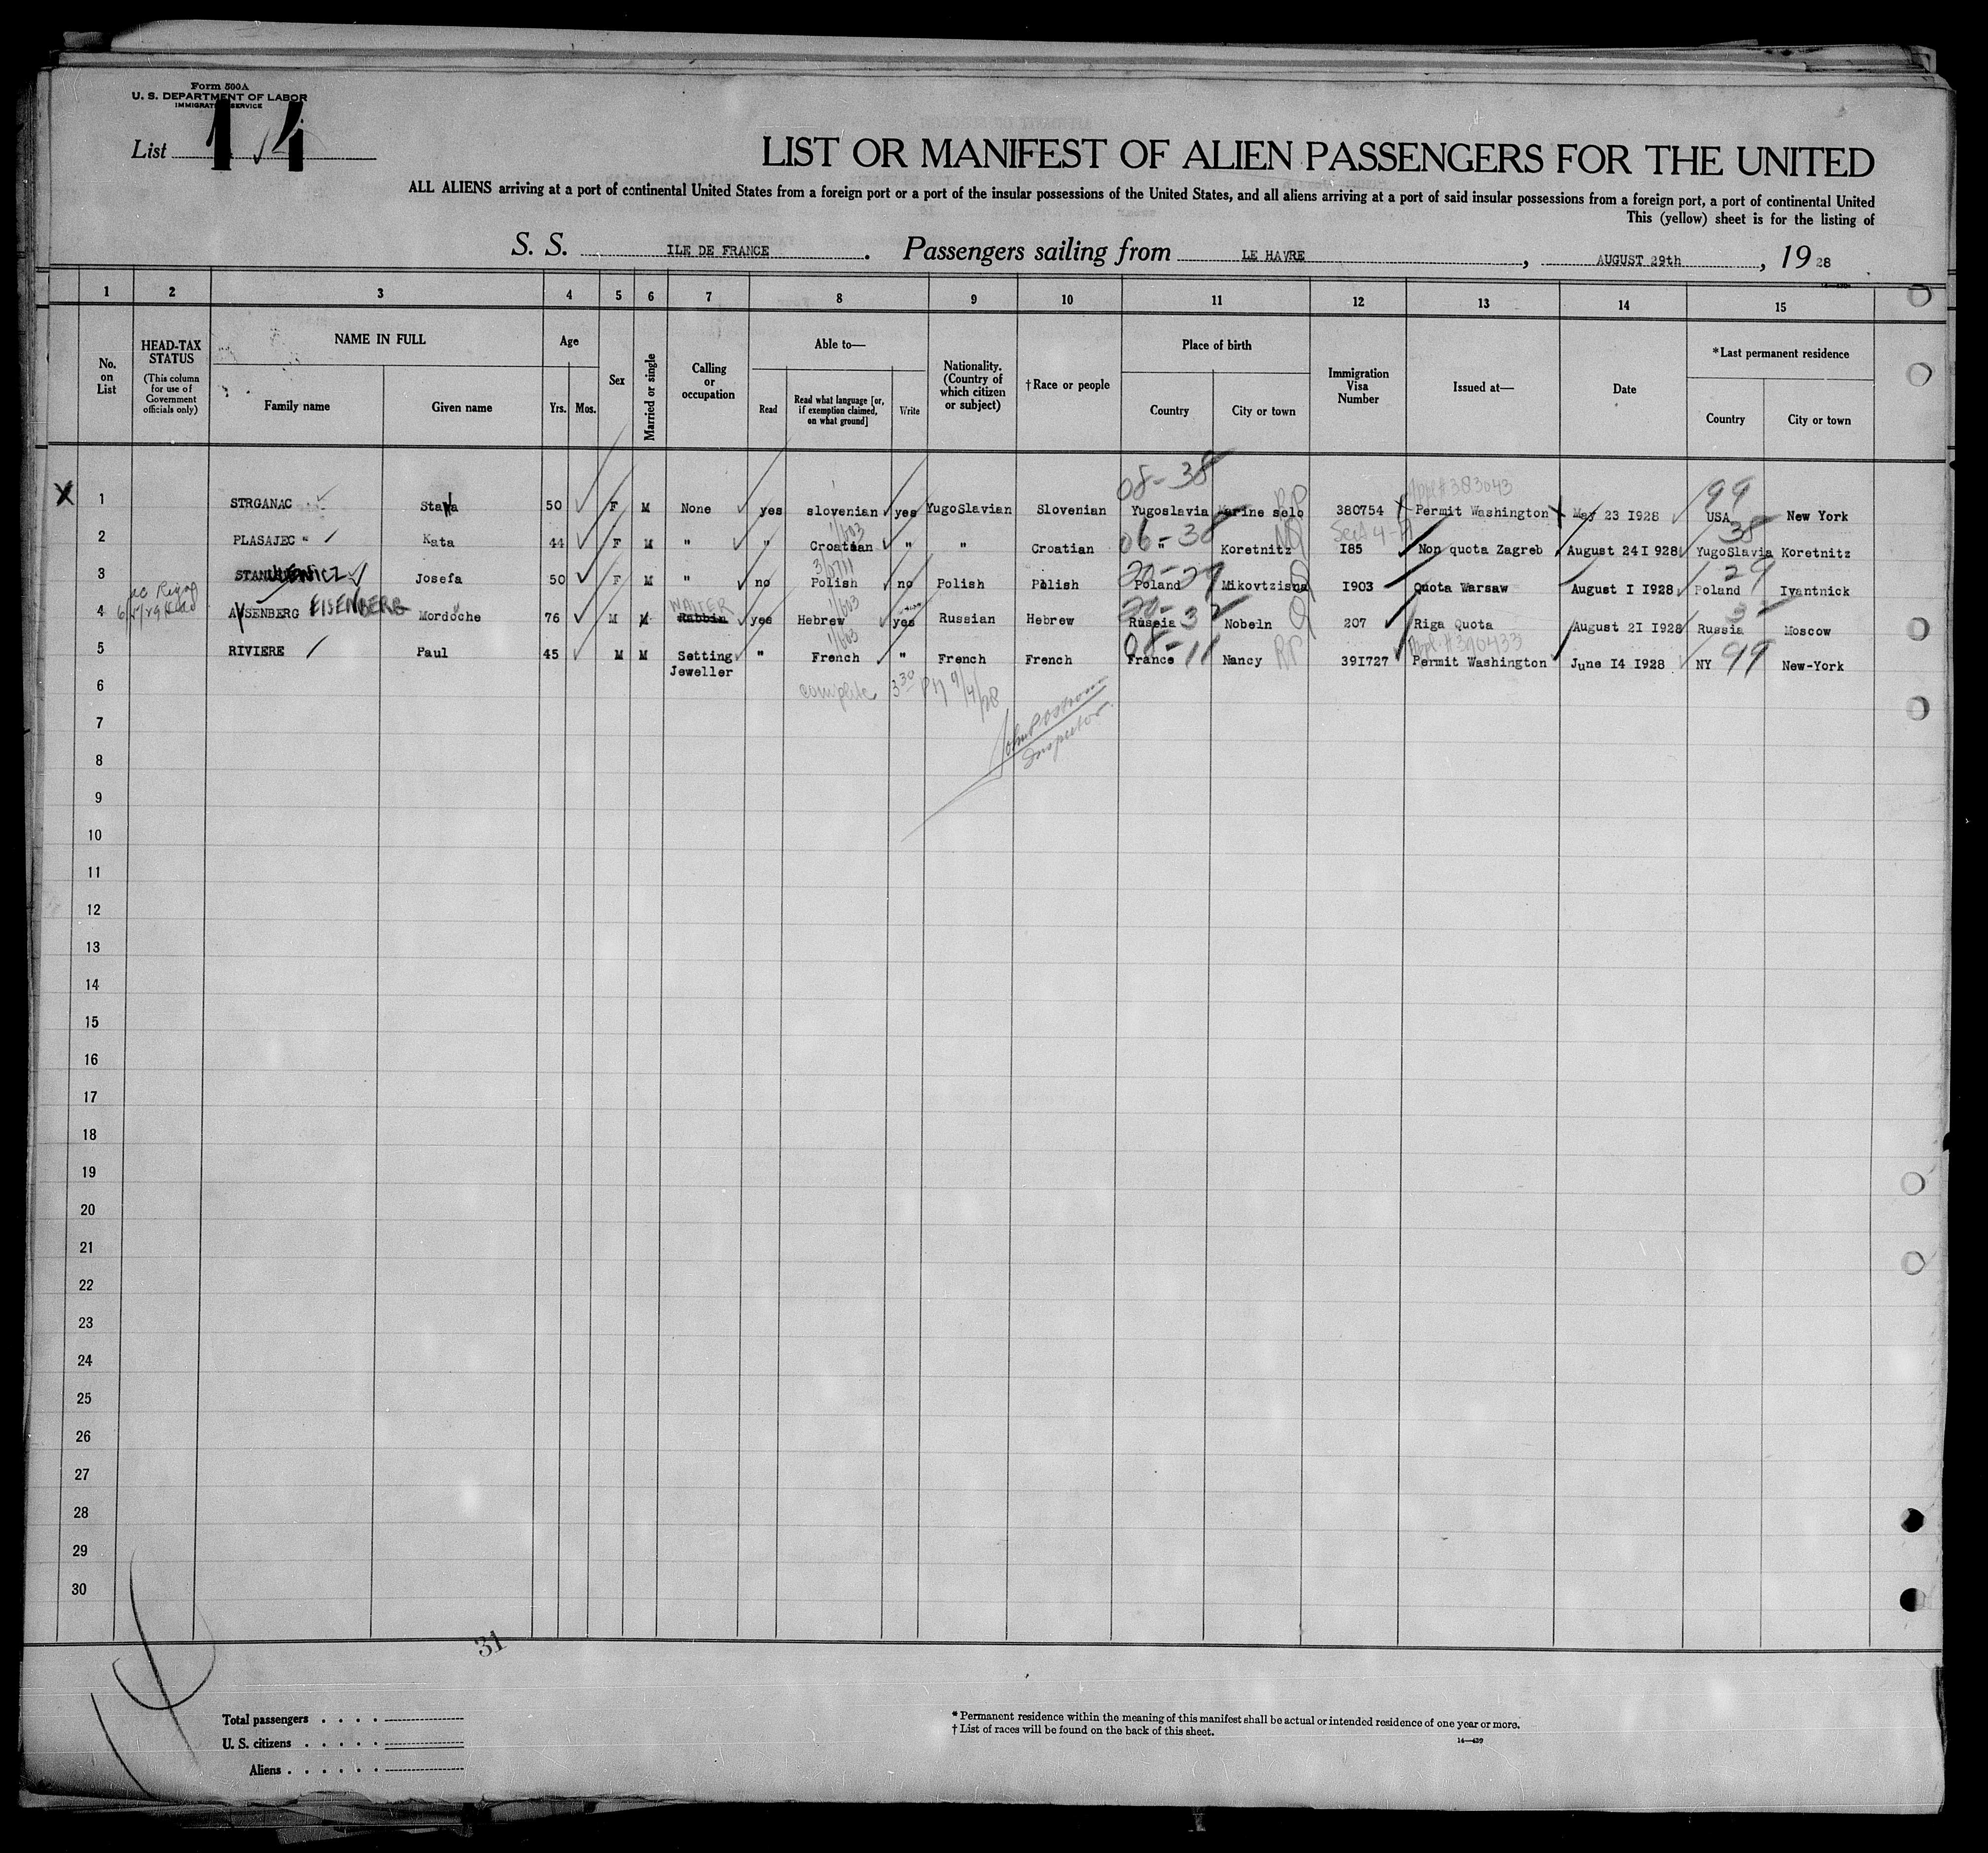 Form 500A
U. S. DEPARTMENT OF LABOR
IMMIGRATION SERVICE
List 14
LIST OR MANIFEST OF ALIEN PASSENGERS FOR THE UNITED
ALL ALIENS arriving at a port of continental United States from a foreign port or a port of the insular possessions of the United States, and all aliens arriving at a port of said insular possessions from a foreign port, a port of continental United
This (yellow) sheet is for the listing of
S. S. ILE DE FRANCE. Passengers sailing from LE HAVRE, AUGUST 29th, 1928
1 2 3 4 5 6 7 8 9 10 11 12 13 14 15
No. on List
HEAD-TAX STATUS
(This column for use of Government officials only)
NAME IN FULL
Family name Given name
Age
Yrs. Mos.
Sex
Married or single
Calling or occupation
Able to—
Read
Read what language [or, if exemption claimed, on what ground]
Write
Nationality. (Country of which citizen or subject)
†Race or people
Place of birth
Country City or town
Immigration Visa Number
Issued at—
Date
*Last permanent residence
Country City or town
08-38 Appl # 383043 99
X 1 STRGANAC 50 F M None yes slovenian yes YugoSlavian Slovenian Yugoslavia Marine selo RP 380754 Permit Washington May 23 I928 USA New York
06-38 NQ Sect 4-A 38
2 PLASAJEC " Kata 44 F M " " Croatian " " Croatian " Koretnitz I85 Non quota Zagreb August 24I 928 YugoSlavia Koretnitz
29
3 Josefa 50 F M " no Polish no Polish Polish Poland Q I903 Quota Warsaw August I I928 Poland Ivantnick
WAITER
4 AISENBERG EISENBERG Mordoche 76 M M Rabbin yes Hebrew yes Russian Hebrew Russia Nobeln Q 207 Riga Quota August 2I I928 Russia Moscow
08-11 Appl # 390433 99
5 RIVIERE Paul 45 M M Setting Jeweller " French " French French France Nancy RP 39I727 Permit Washington June I4 I928 NY New-York
6 complete 3 30 PM 9/4/28
Inspector
7
8
9
10
11
12
13
14
15
16
17
18
19
20
21
22
23
24
25
26
27
28
29
30
31
Total passengers . . . .
U. S. citizens . . . . .
Aliens . . . . . .
* Permanent residence within the meaning of this manifest shall be actual or intended residence of one year or more.
† List of races will be found on the back of this sheet.
14—439